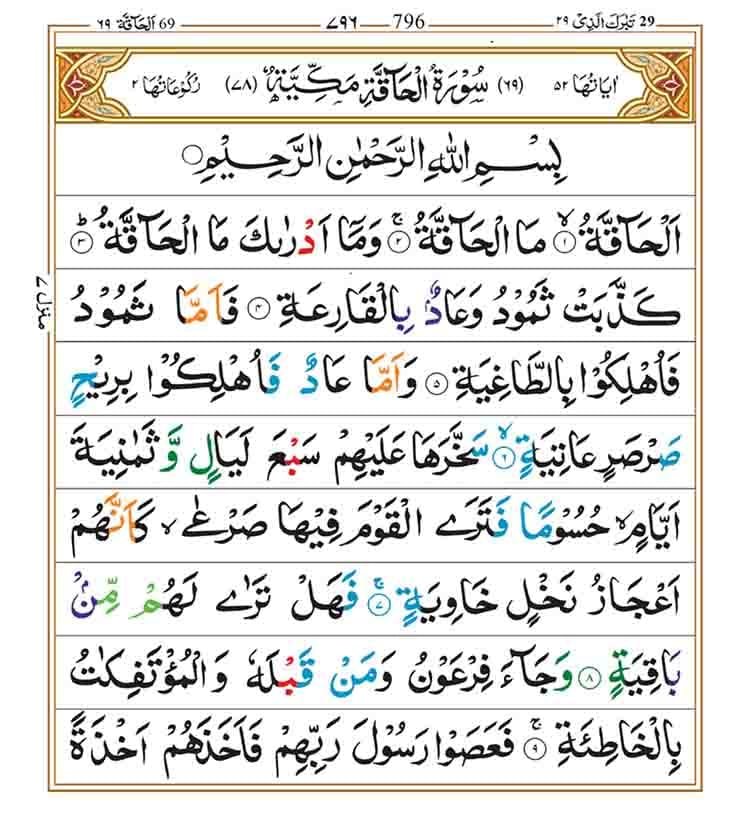 29 تَبٰرَكَ الَّذِیْ ۲۹ 796 ۷۹۶ 69 اَلْحَآقَّة ۶۹
اٰیَاتُهَا ۵۲ (۶۹) سُوْرَةُ الْحَآقَّةِ مَكِّیَّةٌ (۷۸) رُكُوْعَاتُهَا ۲
بِسْمِ اللّٰهِ الرَّحْمٰنِ الرَّحِیْمِ
اَلْحَآقَّةُ ۙ۱ مَا الْحَآقَّةُ ۚ۲ وَمَاۤ اَدْرٰىكَ مَا الْحَآقَّةُ ؕ۳
كَذَّبَتْ ثَمُوْدُ وَعَادٌۢ بِالْقَارِعَةِ ۴ فَاَمَّا ثَمُوْدُ
منزل ۷
فَاُهْلِكُوْا بِالطَّاغِیَةِ ۵ وَاَمَّا عَادٌ فَاُهْلِكُوْا بِرِیْحٍ
صَرْصَرٍ عَاتِیَةٍ ۙ۶ سَخَّرَهَا عَلَیْهِمْ سَبْعَ لَیَالٍ وَّ ثَمٰنِیَةَ
اَیَّامٍ ۙ حُسُوْمًا فَتَرَی الْقَوْمَ فِیْهَا صَرْعٰی ۙ كَاَنَّهُمْ
اَعْجَازُ نَخْلٍ خَاوِیَةٍ ۚ۷ فَهَلْ تَرٰی لَهُمْ مِّنْۢ
بَاقِیَةٍ ۸ وَجَآءَ فِرْعَوْنُ وَمَنْ قَبْلَهٗ وَالْمُؤْتَفِكٰتُ
بِالْخَاطِئَةِ ۚ۹ فَعَصَوْا رَسُوْلَ رَبِّهِمْ فَاَخَذَهُمْ اَخْذَةً